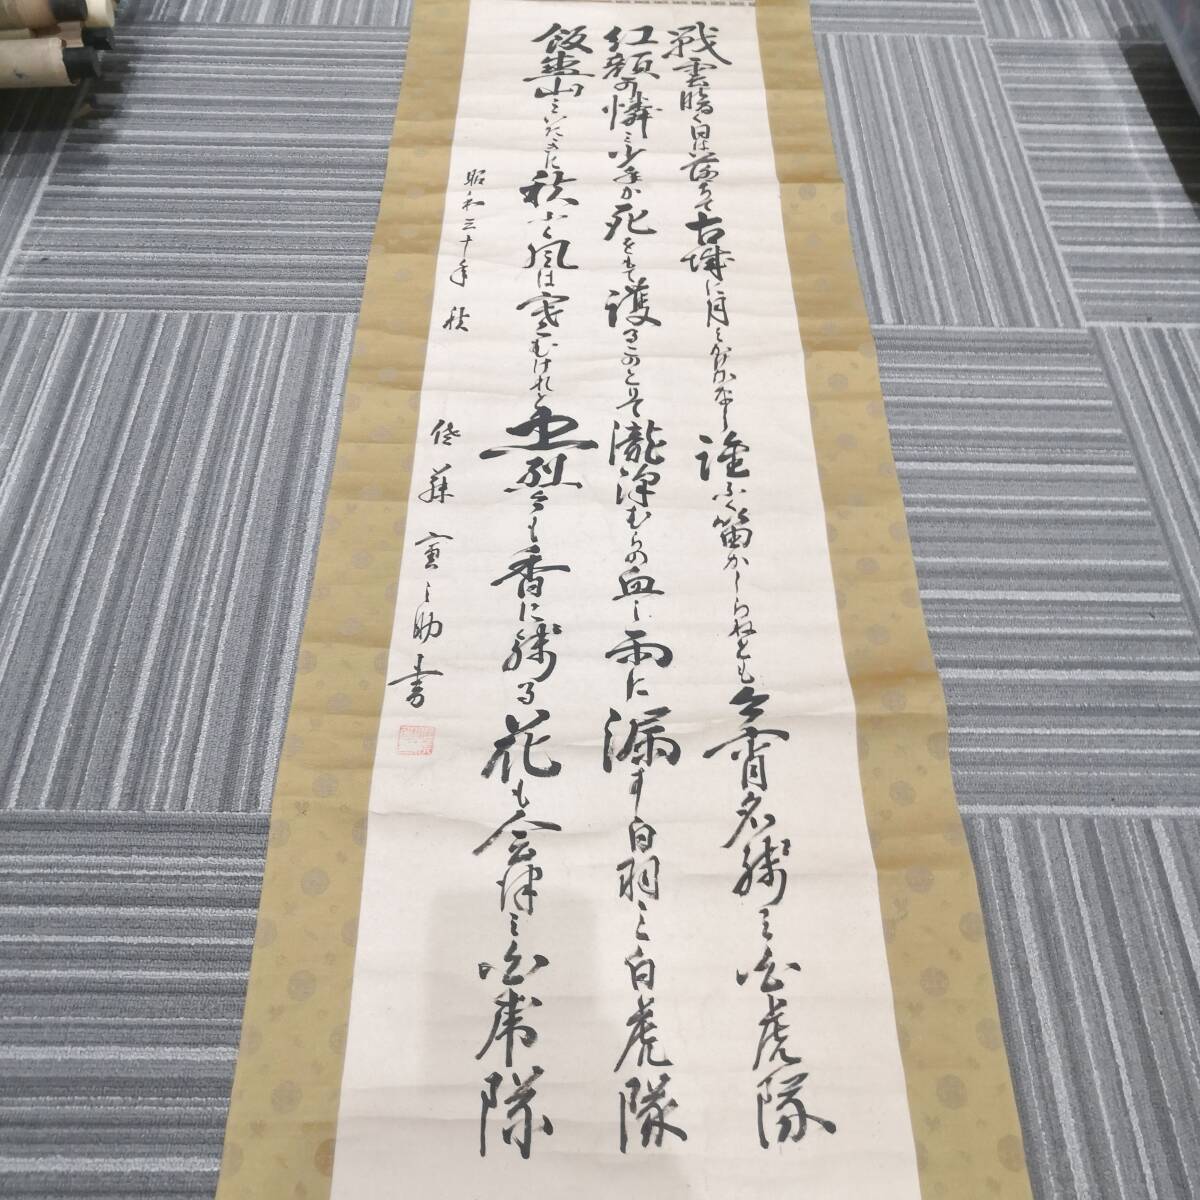 戦雲暗く日は落ちて古城に月のかげかなし誰ふく笛かしらねとも今宵名残の白虎隊
紅顔可憐の少年か死をもて護るこのとりて瀧沢むらの血の雨に濡す白羽の白虎隊
飯盛山のいたゝきに秋ふく風は寒むけれと忠烈今も香に残る花も会津の白虎隊
昭和三十年秋 佐藤 之助書